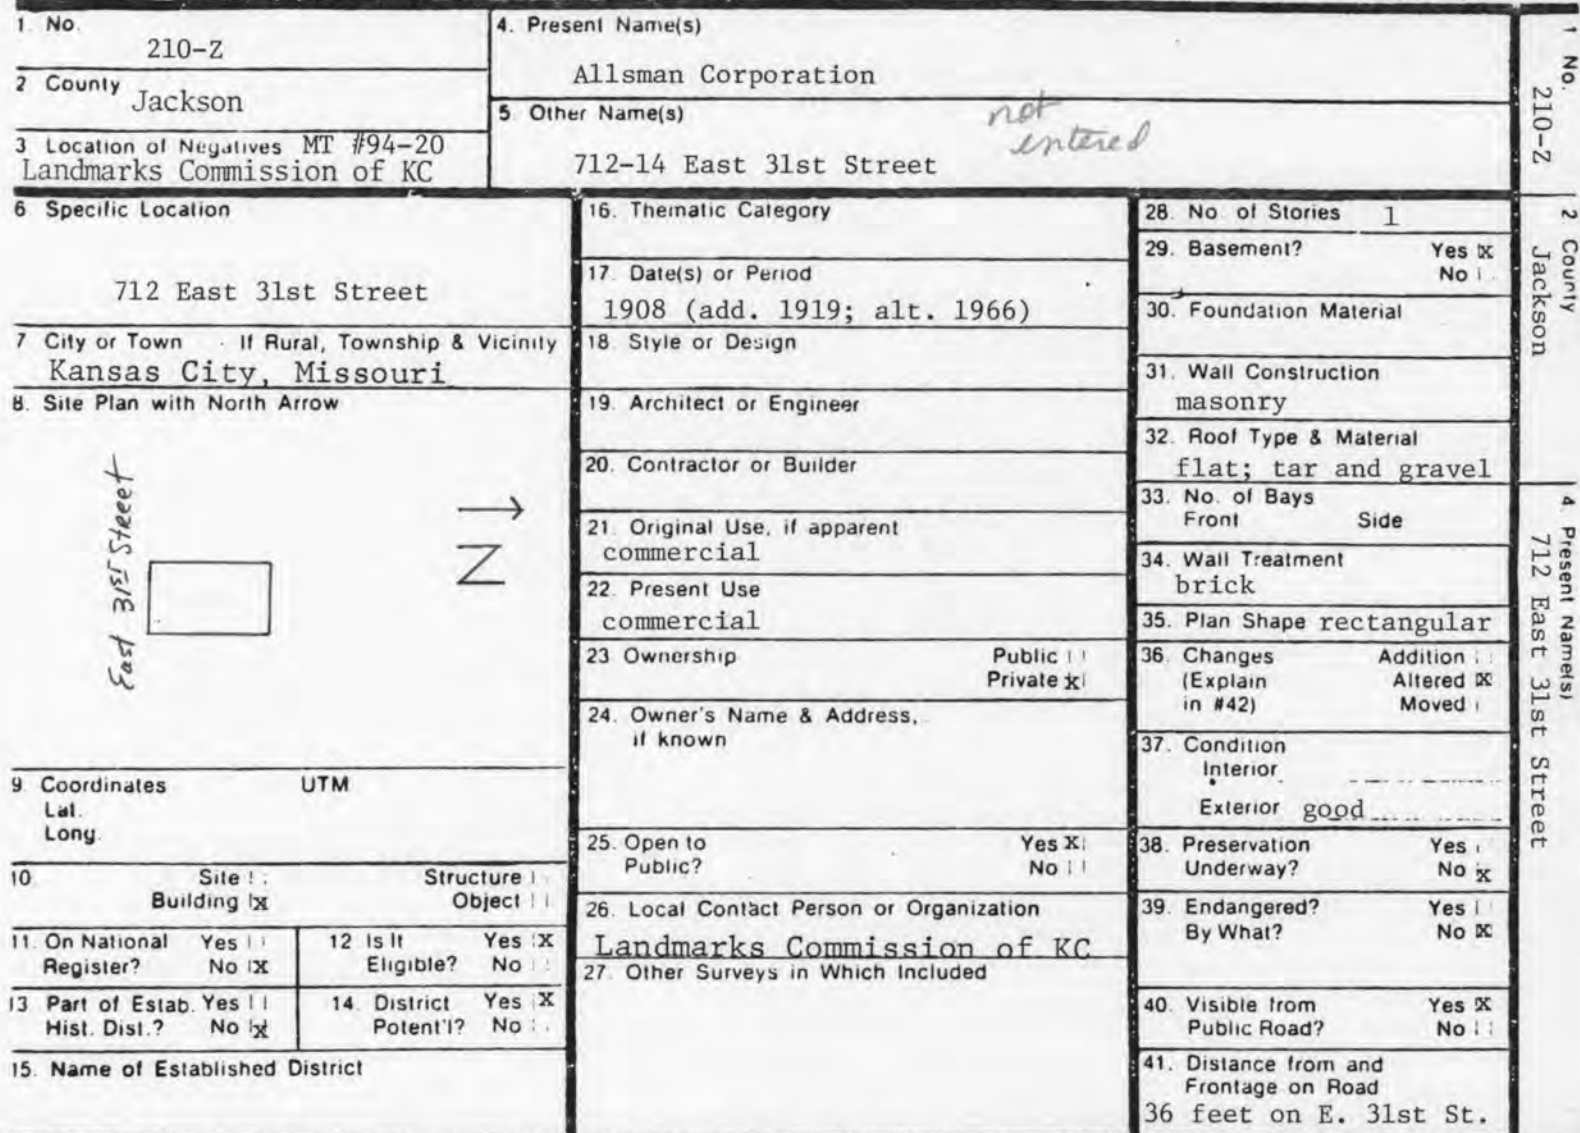 1. No.
210-Z
2 County
Jackson
3 Location of Negatives MT #94-20
Landmarks Commission of KC
4. Present Name(s)
Allsman Corporation
5 Other Name(s)
not
entered
712-14 East 31st Street
6 Specific Location
712 East 31st Street
7 City or Town If Rural, Township & Vicinity
Kansas City, Missouri
8. Site Plan with North Arrow
East 31st Street
N
9. Coordinates UTM
Lat.
Long.
10. Site Structure
Building X Object
11. On National Yes
Register? No X
12 Is It Yes X
Eligible? No
13 Part of Estab. Yes
Hist. Dist.? No X
14. District Yes X
Potent'l? No
15. Name of Established District
16. Thematic Category
17. Date(s) or Period
1908 (add. 1919; alt. 1966)
18. Style or Design
19. Architect or Engineer
20. Contractor or Builder
21. Original Use, if apparent
commercial
22. Present Use
commercial
23 Ownership Public
Private X
24. Owner's Name & Address,
if known
25. Open to Yes X
Public? No
26. Local Contact Person or Organization
Landmarks Commission of KC
27. Other Surveys in Which Included
28. No. of Stories 1
29. Basement? Yes X
No
30. Foundation Material
31. Wall Construction
masonry
32. Roof Type & Material
flat; tar and gravel
33. No. of Bays
Front Side
34. Wall Treatment
brick
35. Plan Shape rectangular
36. Changes Addition
(Explain Altered X
in #42) Moved
37. Condition
Interior
Exterior good
38. Preservation Yes
Underway? No X
39. Endangered? Yes
By What? No X
40. Visible from Yes X
Public Road? No
41. Distance from and
Frontage on Road
36 feet on E. 31st St.
1 No.
210-Z
2 County
Jackson
4. Present Name(s)
712 East 31st Street